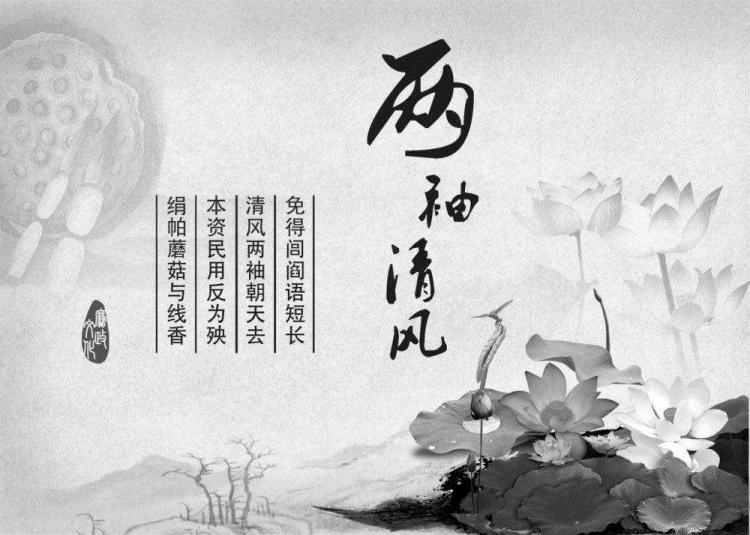 两袖清风
绢帕蘑菇与线香
本资民用反为殃
清风两袖朝天去
免得闾阎语短长
廉政文化